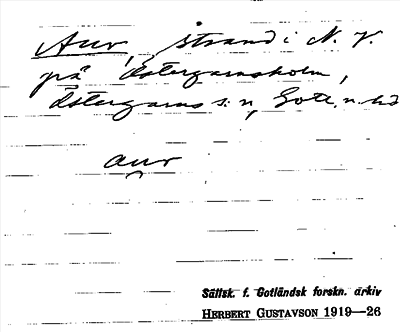 Aur, strand i N.V.
på Östergarnsholm,
Östergarns s:n, Gotl. n. hd
aur
Sällsk. f. Gotländsk forskn. arkiv
HERBERT GUSTAVSON 1919—26